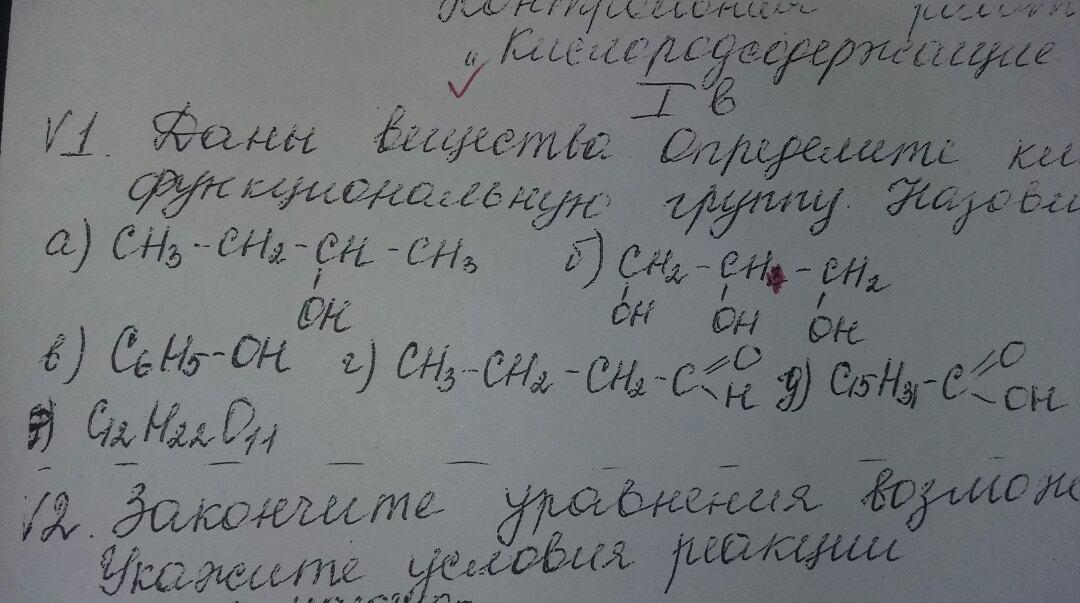 Контрольная
"Кислородсодержащие
I в
√1. Даны вещества. Определите
функциональную группу. Назови
а) CH3-CH2-CH-CH3 б) CH2-CH-CH2
OH OH OH OH
в) C6H5-OH г) CH3-CH2-CH2-C=O H д) C15H31-C=O OH
C12H22O11
√2. Закончите уравнения возмож
Укажите условия реакции